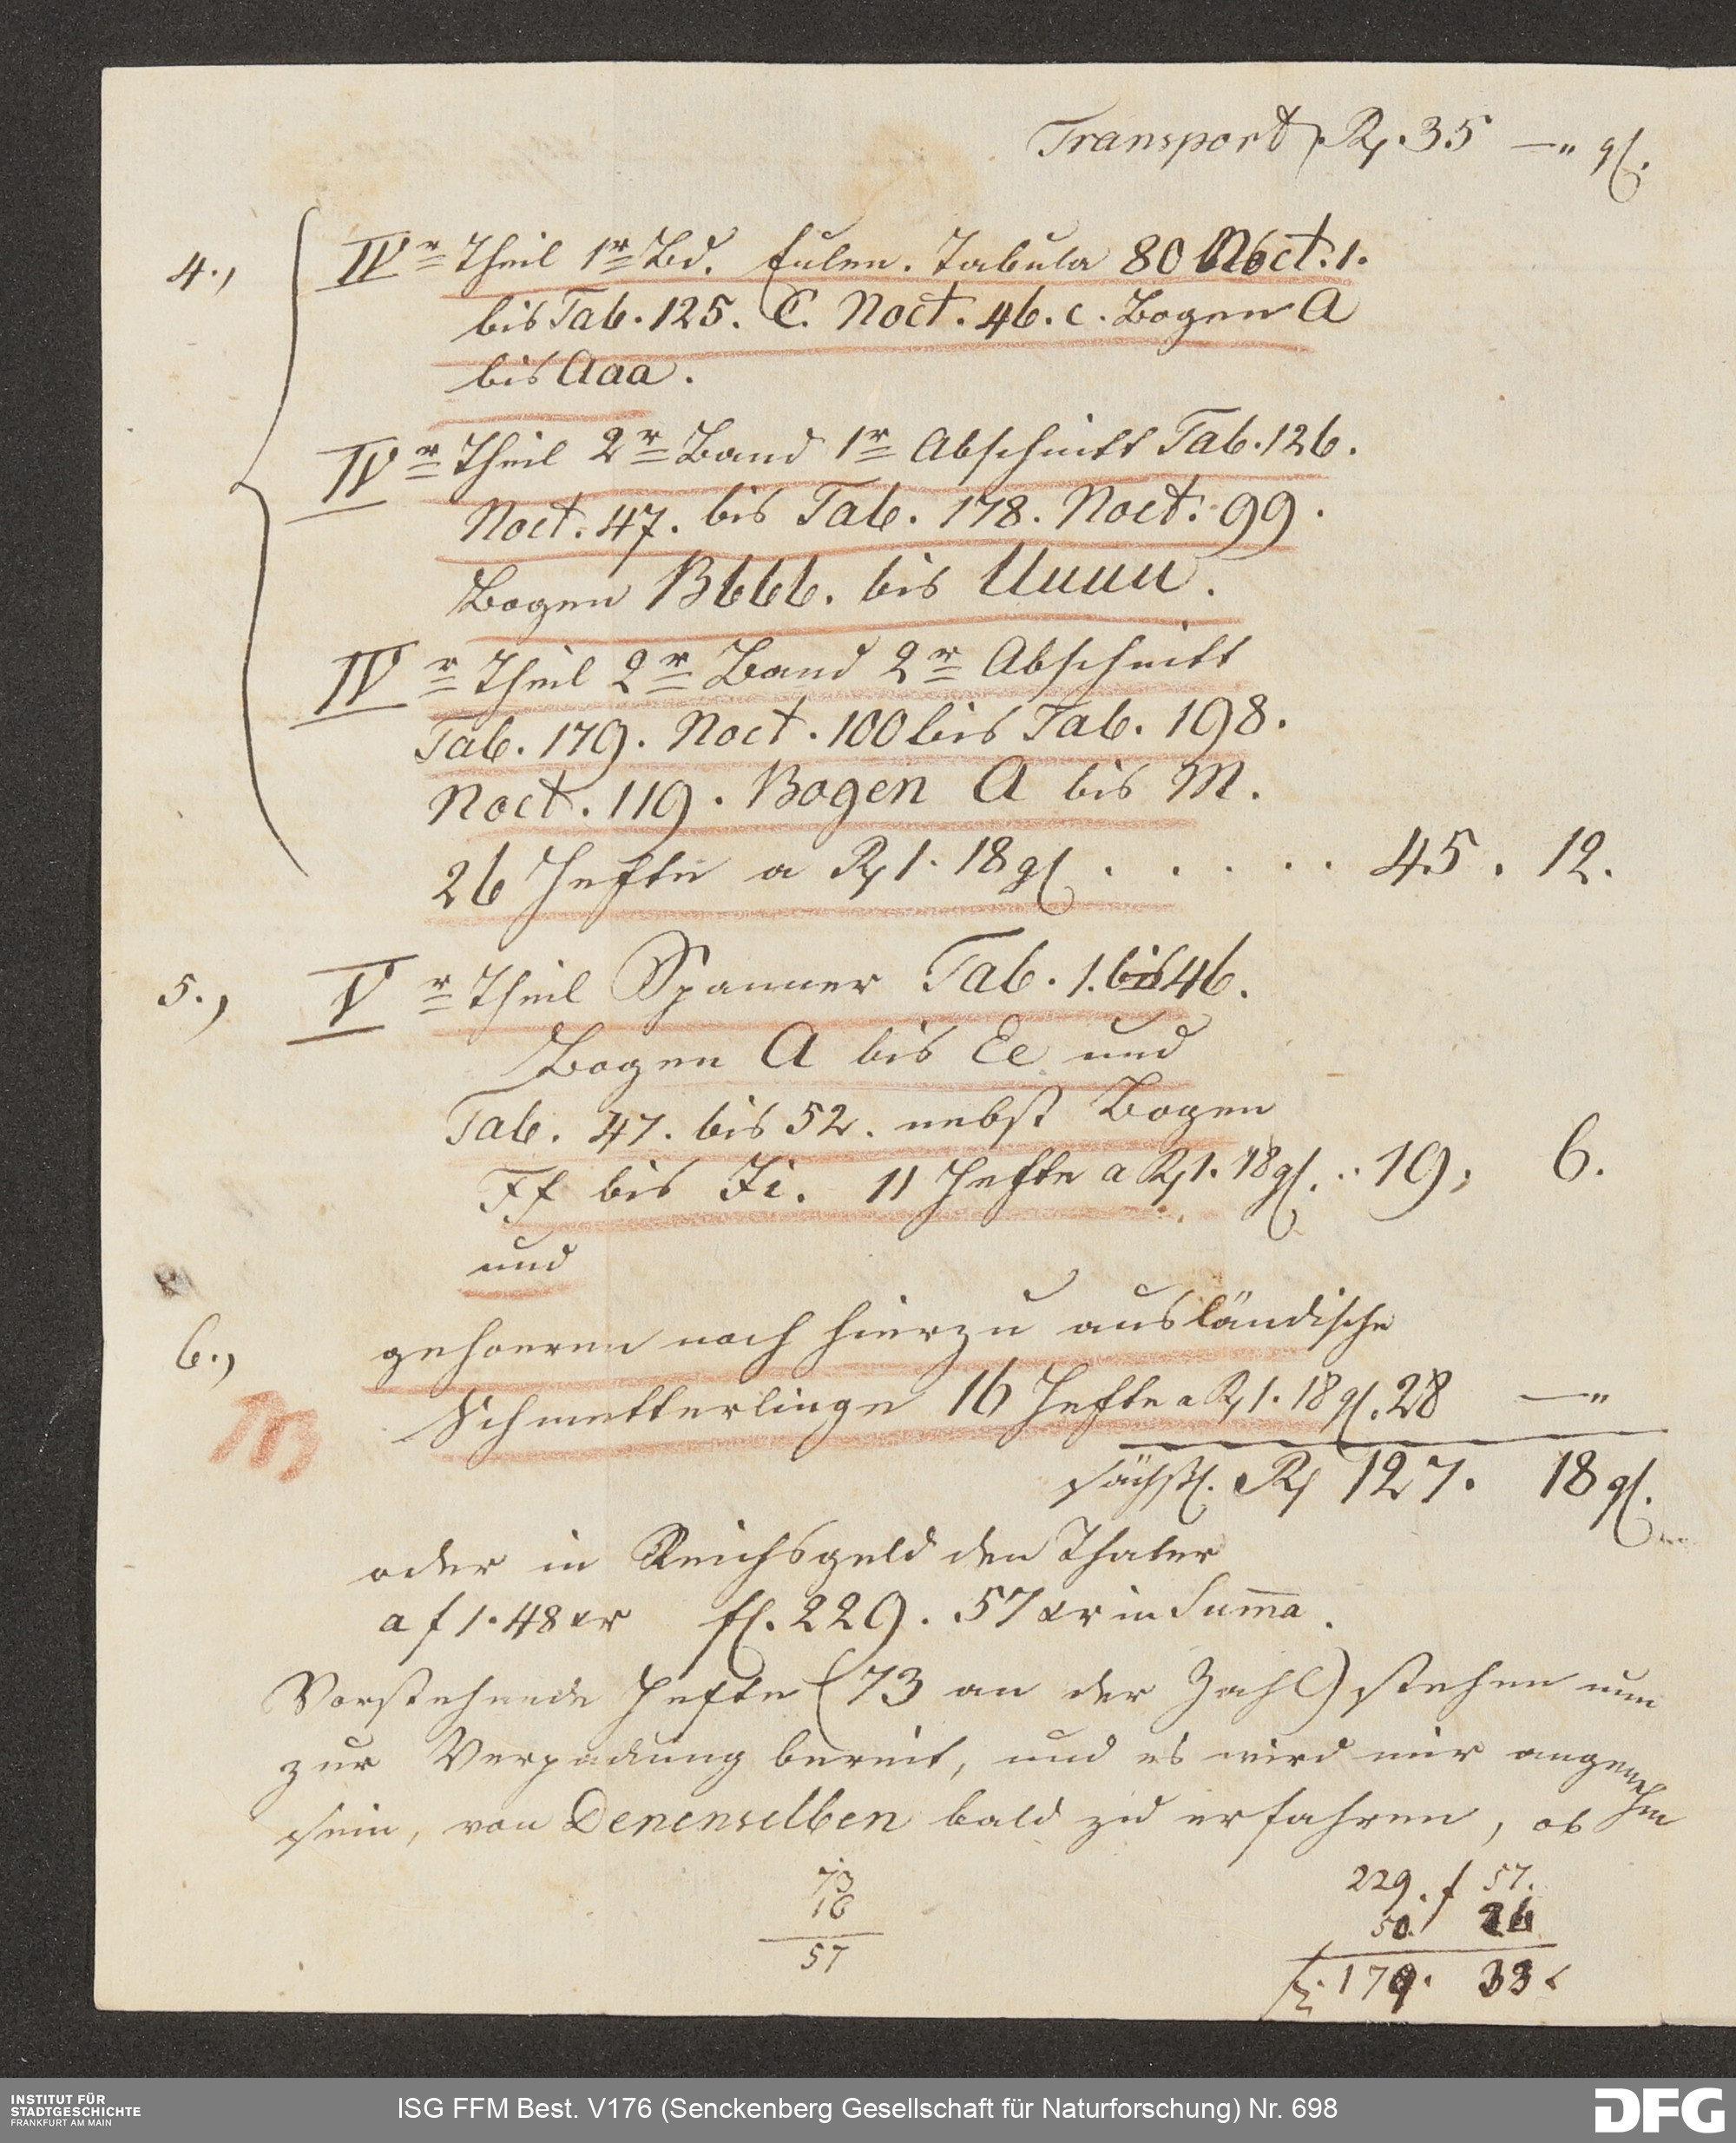 Transport Rthr. 35 —„ gl.
4.,
IVr Theil 1r Bd. Eulen. Tabula 80 Noct. 1.
bis Tab. 125. C. Noct. 46. c. Bogen A
bis Aaa.
IVr Theil 2r Band 1r Abschnitt Tab. 126.
Noct. 47. bis Tab. 178. Noct. 99.
Bogen Bbbb. bis Uuuu.
IVr Theil 2r Band 2r Abschnitt
Tab. 179. Noct. 100 bis Tab. 198.
Noct. 119. Bogen A bis M.
26 Hefte a Rthr 1. 18 gl . . . . . 45. 12.
5., Vr Theil Spanner Tab. 1. bis 46.
Bogen A bis Ee und
Tab. 47. bis 52. nebst Bogen
Ff bis Ii. 11 Hefte a Rthr 1. 18 gl. .. 19, 6.
und
6., gehoeren noch hierzu ausländische
Schmetterlinge 16 Hefte a Rthr 1. 18 gl. 28 —„
sächsl. Rthr 127. 18 gl.
oder in Reichsgeld den Thaler
a f 1. 48 xr fl. 229. 57 xr in Sum̄a.
Vorstehende Hefte (73 an der Zahl) stehen nun
zur Verpackung bereit, und es wird mir angenehm
sein, von Denenselben bald zu erfahren, ob
73
16
57
229. f 57.
50. 26
f. 179. 33
INSTITUT FÜR
STADTGESCHICHTE
FRANKFURT AM MAIN
ISG FFM Best. V176 (Senckenberg Gesellschaft für Naturforschung) Nr. 698
DFG